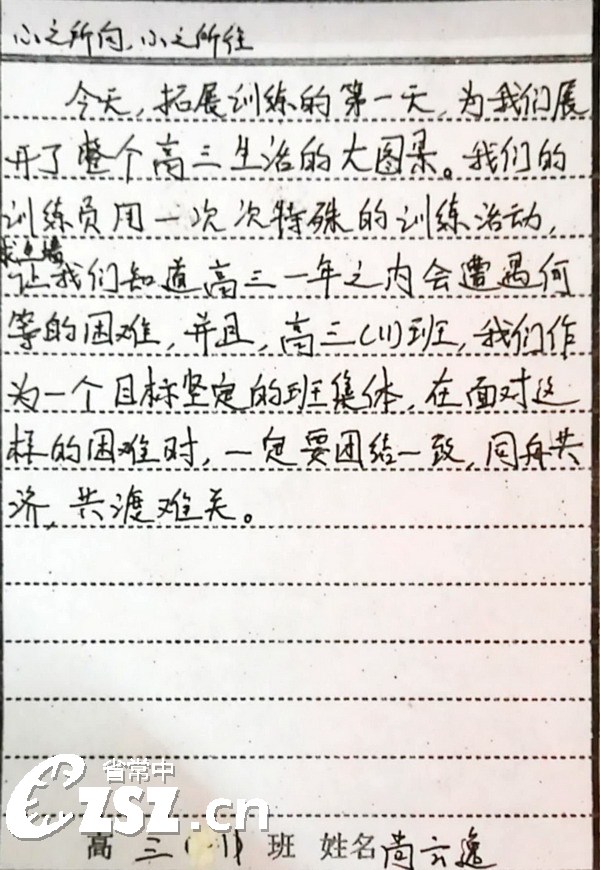 心之所向,心之所往
今天,拓展训练的第一天,为我们展
开了整个高三生活的大图景。我们的
训练员用一次次特殊的训练活动,
让我们知道高三一年之内会遭遇何
等的困难,并且,高三(11)班,我们作
为一个目标坚定的班集体,在面对这
样的困难时,一定要团结一致,同舟共
济,共渡难关。
省常中
CZSZ.cn
高 三(11) 班 姓名 尚云逸